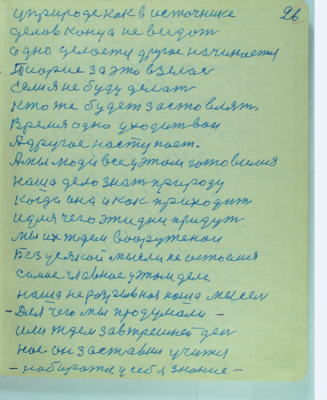 26
у природе как в источнике
делов конца не видот
одно делается другое начинается
Теория за это взелась
Если я не буду делат
кто же будет застовлят.
Время одно уходит вон
А другое наступает.
А ты люди все у этом готовился
наша дело знат природу
когда она и как приходит
и для чего эти дни придут
мы их ждем вооруженои
Без усякой мысли не состоялся
самое главное у этом деле
наша не разрывная наша мысел
- Для чего мы продумали -
или ждем завтрешней ден
он заставил учится
- набиратся у себя знание -